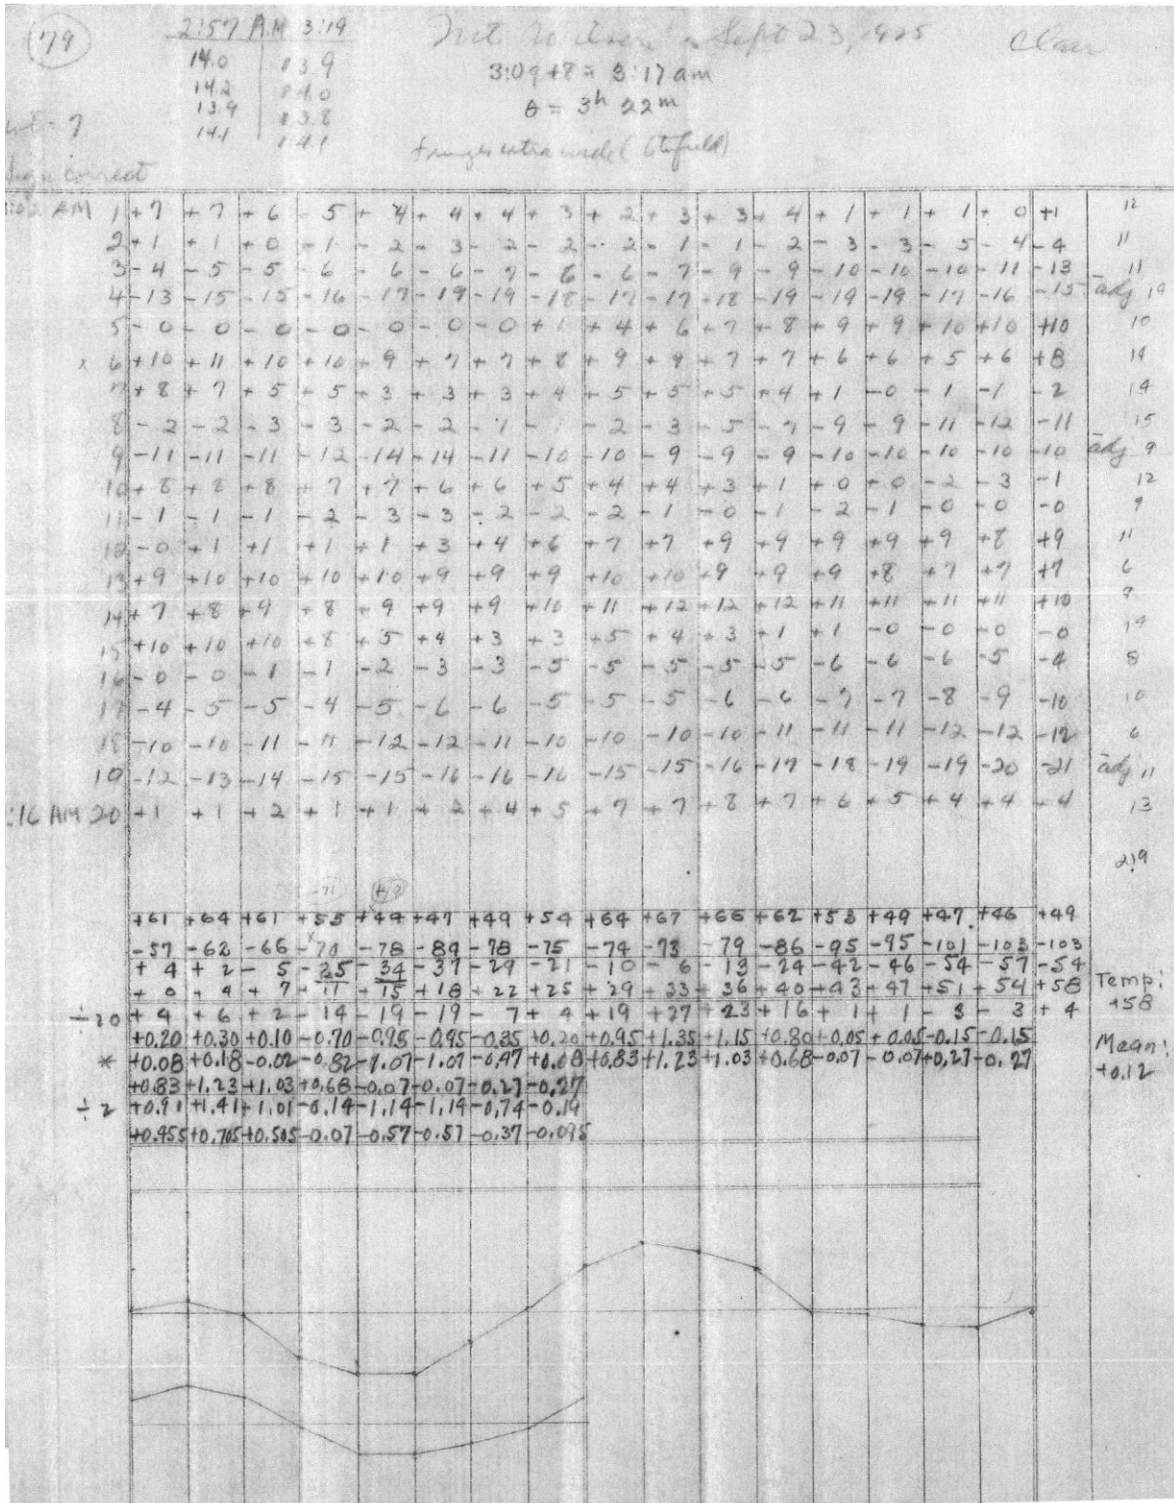 79 2:57 AM 3:19 Mt Wilson Sept 23, 1925 Clear
14.0 13.9 3:09+8 = 3:17 am
14.2 14.0 θ = 3h 22m
13.9 13.8
14.1 14.1 fringes extra wide
Sign correct
AM 1 +7 +7 +6 5 + 4 + 4 + 4 + 3 + 2 + 3 + 3 + 4 + 1 + 1 + 1 + 0 +1 12
2 +1 +1 +0 -1 -2 -3 -2 -2 -2 -1 -1 -2 -3 -3 -5 -4 -4 11
3 -4 -5 -5 -6 -6 -6 -7 -6 -6 -7 -9 -9 -10 -10 -10 -11 -13 11
4 -13 -15 -15 -16 -17 -19 -19 -18 -17 -17 -18 -19 -19 -19 -17 -16 -15 adj 19
5 -0 -0 -0 -0 -0 -0 -0 +1 +4 +6 +7 +8 +9 +9 +10 +10 +10 10
x 6 +10 +11 +10 +10 +9 +7 +7 +8 +9 +9 +7 +7 +6 +6 +5 +6 +8 14
7 +8 +7 +5 -5 +3 +3 +3 +4 +5 +5 +5 +4 +1 -0 -1 -1 -2 14
8 -2 -2 -3 -3 -2 -2 -1 -1 -2 -3 -5 -7 -9 -9 -11 -12 -11 15
9 -11 -11 -11 -12 -14 -14 -11 -10 -10 -9 -9 -9 -10 -10 -10 -10 -10 adj 9
10 +8 +8 +8 +7 +7 +6 +6 +5 +4 +4 +3 +1 +0 +0 -2 -3 -1 12
11 -1 -1 -1 -2 -3 -3 -2 -2 -2 -1 -0 -1 -2 -1 -0 -0 -0 9
12 -0 +1 +1 +1 +1 +3 +4 +6 +7 +7 +9 +9 +9 +9 +9 +8 +9 11
13 +9 +10 +10 +10 +10 +9 +9 +9 +10 +10 +9 +9 +9 +8 +7 +7 +7 6
14 +7 +8 +9 +8 +9 +9 +9 +10 +11 +12 +12 +12 +11 +11 +11 +11 +10 9
15 +10 +10 +10 +8 +5 +4 +3 +3 +5 +4 +3 +1 +1 -0 -0 -0 -0 14
16 -0 -0 -1 -1 -2 -3 -3 -5 -5 -5 -5 -5 -6 -6 -6 -5 -4 8
17 -4 -5 -5 -4 -5 -6 -6 -5 -5 -5 -6 -6 -7 -7 -8 -9 -10 10
18 -10 -10 -11 -11 -12 -12 -11 -10 -10 -10 -10 -11 -11 -11 -12 -12 -12 6
10 -12 -13 -14 -15 -15 -16 -16 -16 -15 -15 -16 -17 -18 -19 -19 -20 -21 adj 11
:16 AM 20 +1 +1 +2 +1 +1 +2 +4 +5 +7 +7 +8 +7 +6 +5 +4 +4 +4 13
219
-71
+61 +64 +61 +55 +44 +47 +49 +54 +64 +67 +66 +62 +53 +49 +47 +46 +49
-57 -62 -66 -70 -78 -84 -78 -75 -74 -73 -79 -86 -95 -95 -101 -103 -103
+ 4 + 2 - 5 -25 -34 -37 -29 -21 -10 - 6 -13 -24 -42 -46 -54 -57 -54 Temp:
+ 0 + 4 + 7 +11 +15 +18 +22 +25 +29 +33 +36 +40 +43 +47 +51 +54 +58 +58
÷20 + 4 + 6 + 2 -14 -19 -19 - 7 + 4 +19 +27 +23 +16 + 1 + 1 - 3 - 3 + 4
+0.20 +0.30 +0.10 -0.70 -0.95 -0.95 -0.35 +0.20 +0.95 +1.35 +1.15 +0.80 +0.05 +0.05 -0.15 -0.15 Mean:
* +0.08 +0.18 -0.02 -0.82 -1.07 -1.07 -0.47 +0.08 +0.83 +1.23 +1.03 +0.68 -0.07 -0.07 +0.27 -0.27 +0.12
+0.83 +1.23 +1.03 +0.68 -0.07 -0.07 -0.27 -0.27
÷2 +0.91 +1.41 +1.01 -0.14 -1.14 -1.14 -0.74 -0.19
+0.455 +0.705 +0.505 -0.07 -0.57 -0.57 -0.37 -0.095